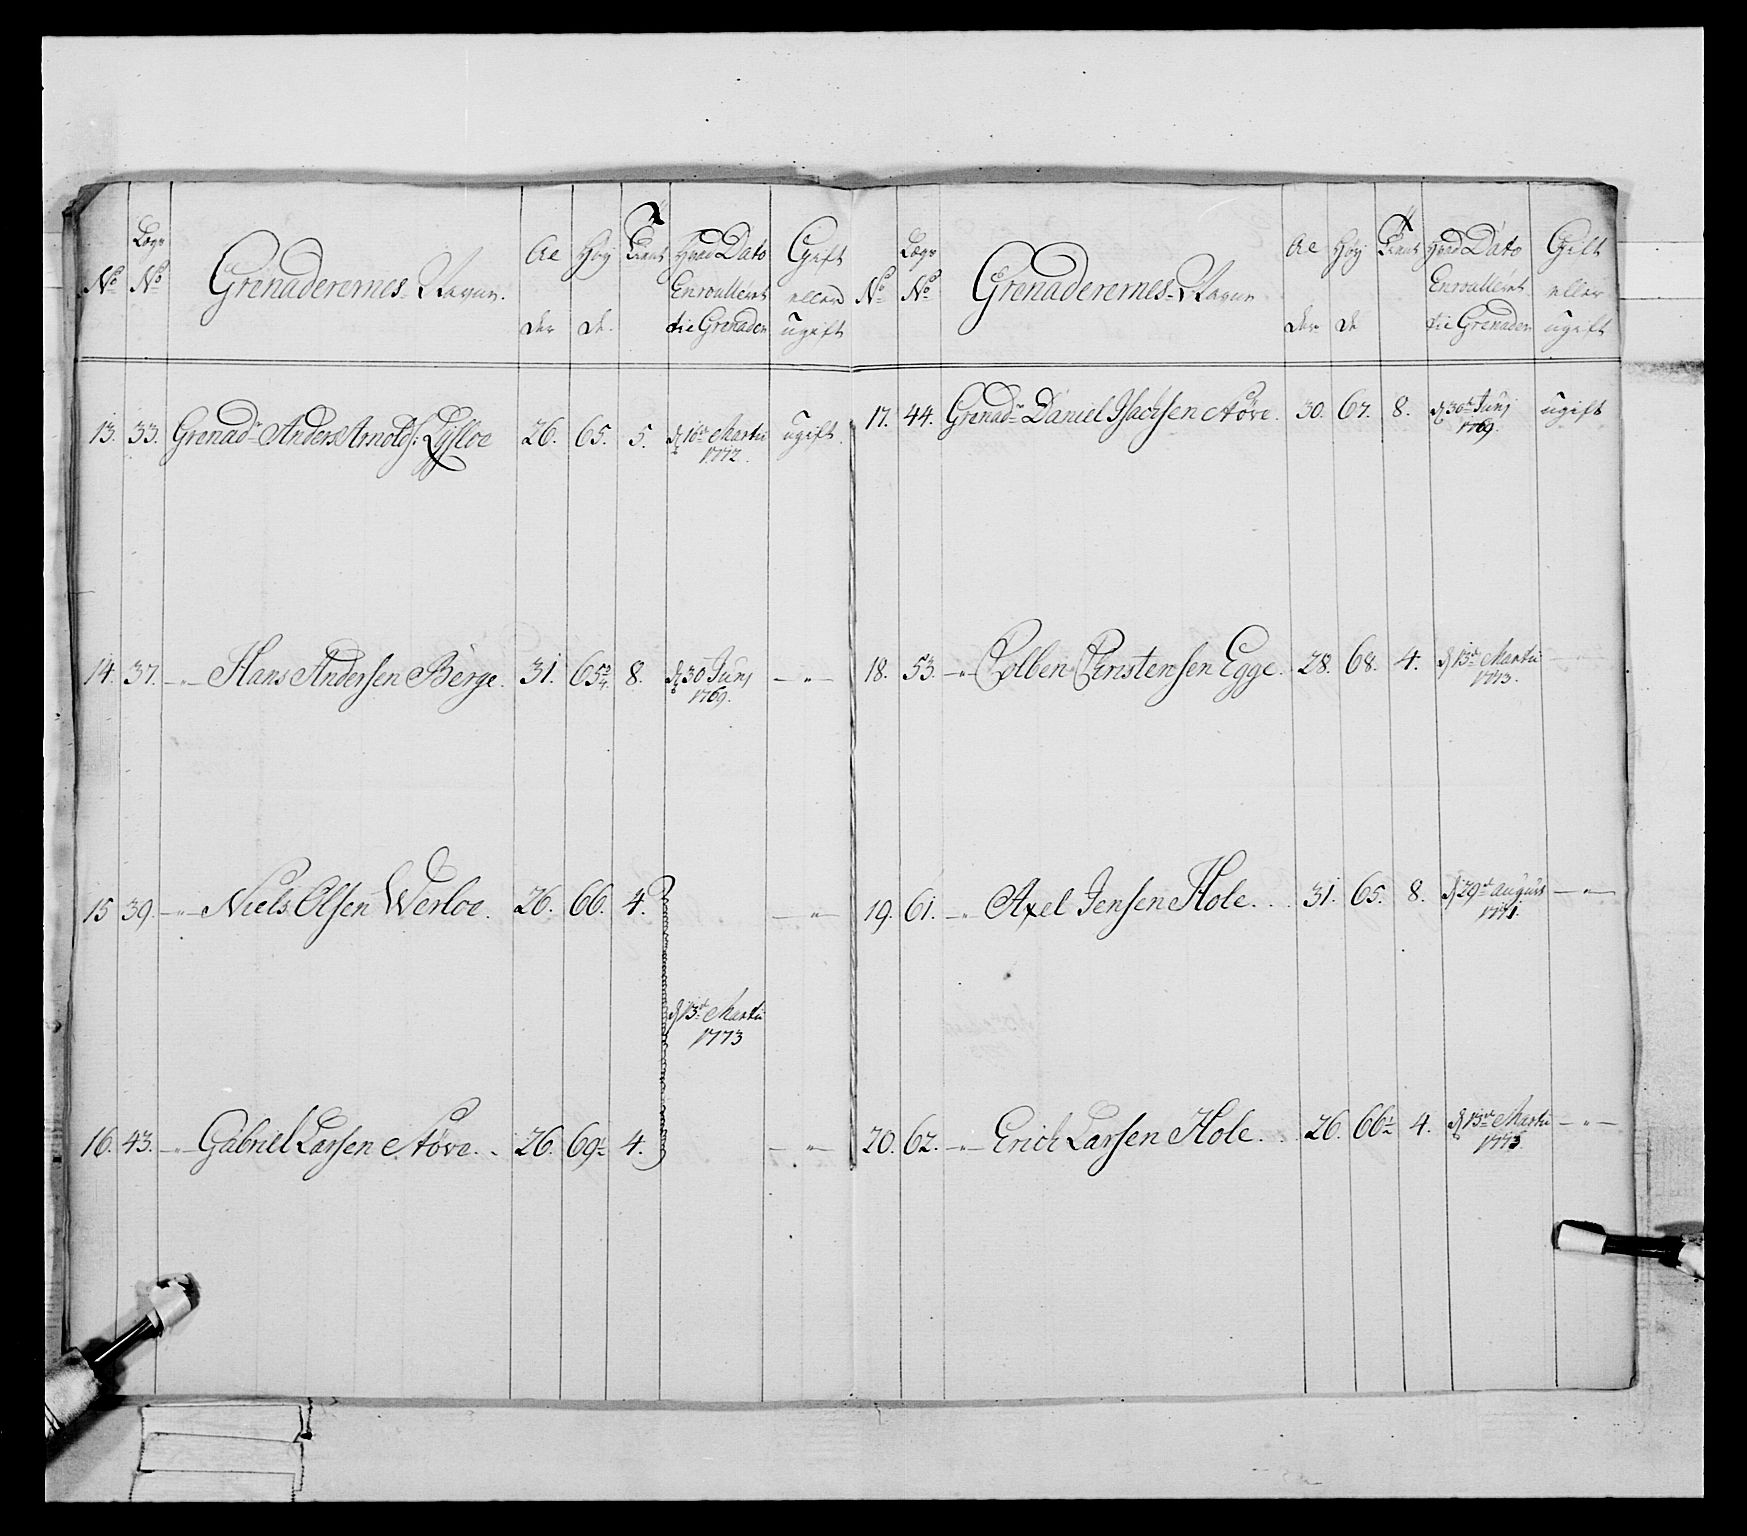 No
Lægs No
Grenaderernes Nafne.
Al der
Høy de.
Tient
Hvad Dato Enroulleret til Grenader
Gift eller ugift
13. 33. Grenad:r Anders Arnolds: Lysloe 26. 65. 5. d 16de Martii 1772. ugift.
14. 37. -"- Hans Andersen Berge. 31. 65 3/4 8. d 30 Junj 1769. -"-
15 39. -"- Niels Olsen Werloe. 26. 66. 4. -"-
d 13de Martii 1773
16. 43. -"- Gabriel Larsen Støve. 26. 69 1/2 4. -"-
No
Lægs No
Grenaderernes Nafne
Al der
Høy de
Tient
Hvad Dato Enroulleret til Grenader
Gift eller ugift
17. 44. Grenad:r Daniel Isacksen Støve. 30. 67. 8. d 30te Junj 1769. ugift
18. 53. -"- Colben Cerstensen Egge. 28. 68. 4. d 13de Martii 1773. -"-
19. 61. -"- Axel Jensen Hole. 31. 65. 8. d 29de august 1771. -"-
20. 62. -"- Erich Larsen Hole. 26. 66 1/2 4. d 13de Martii 1773. -"-